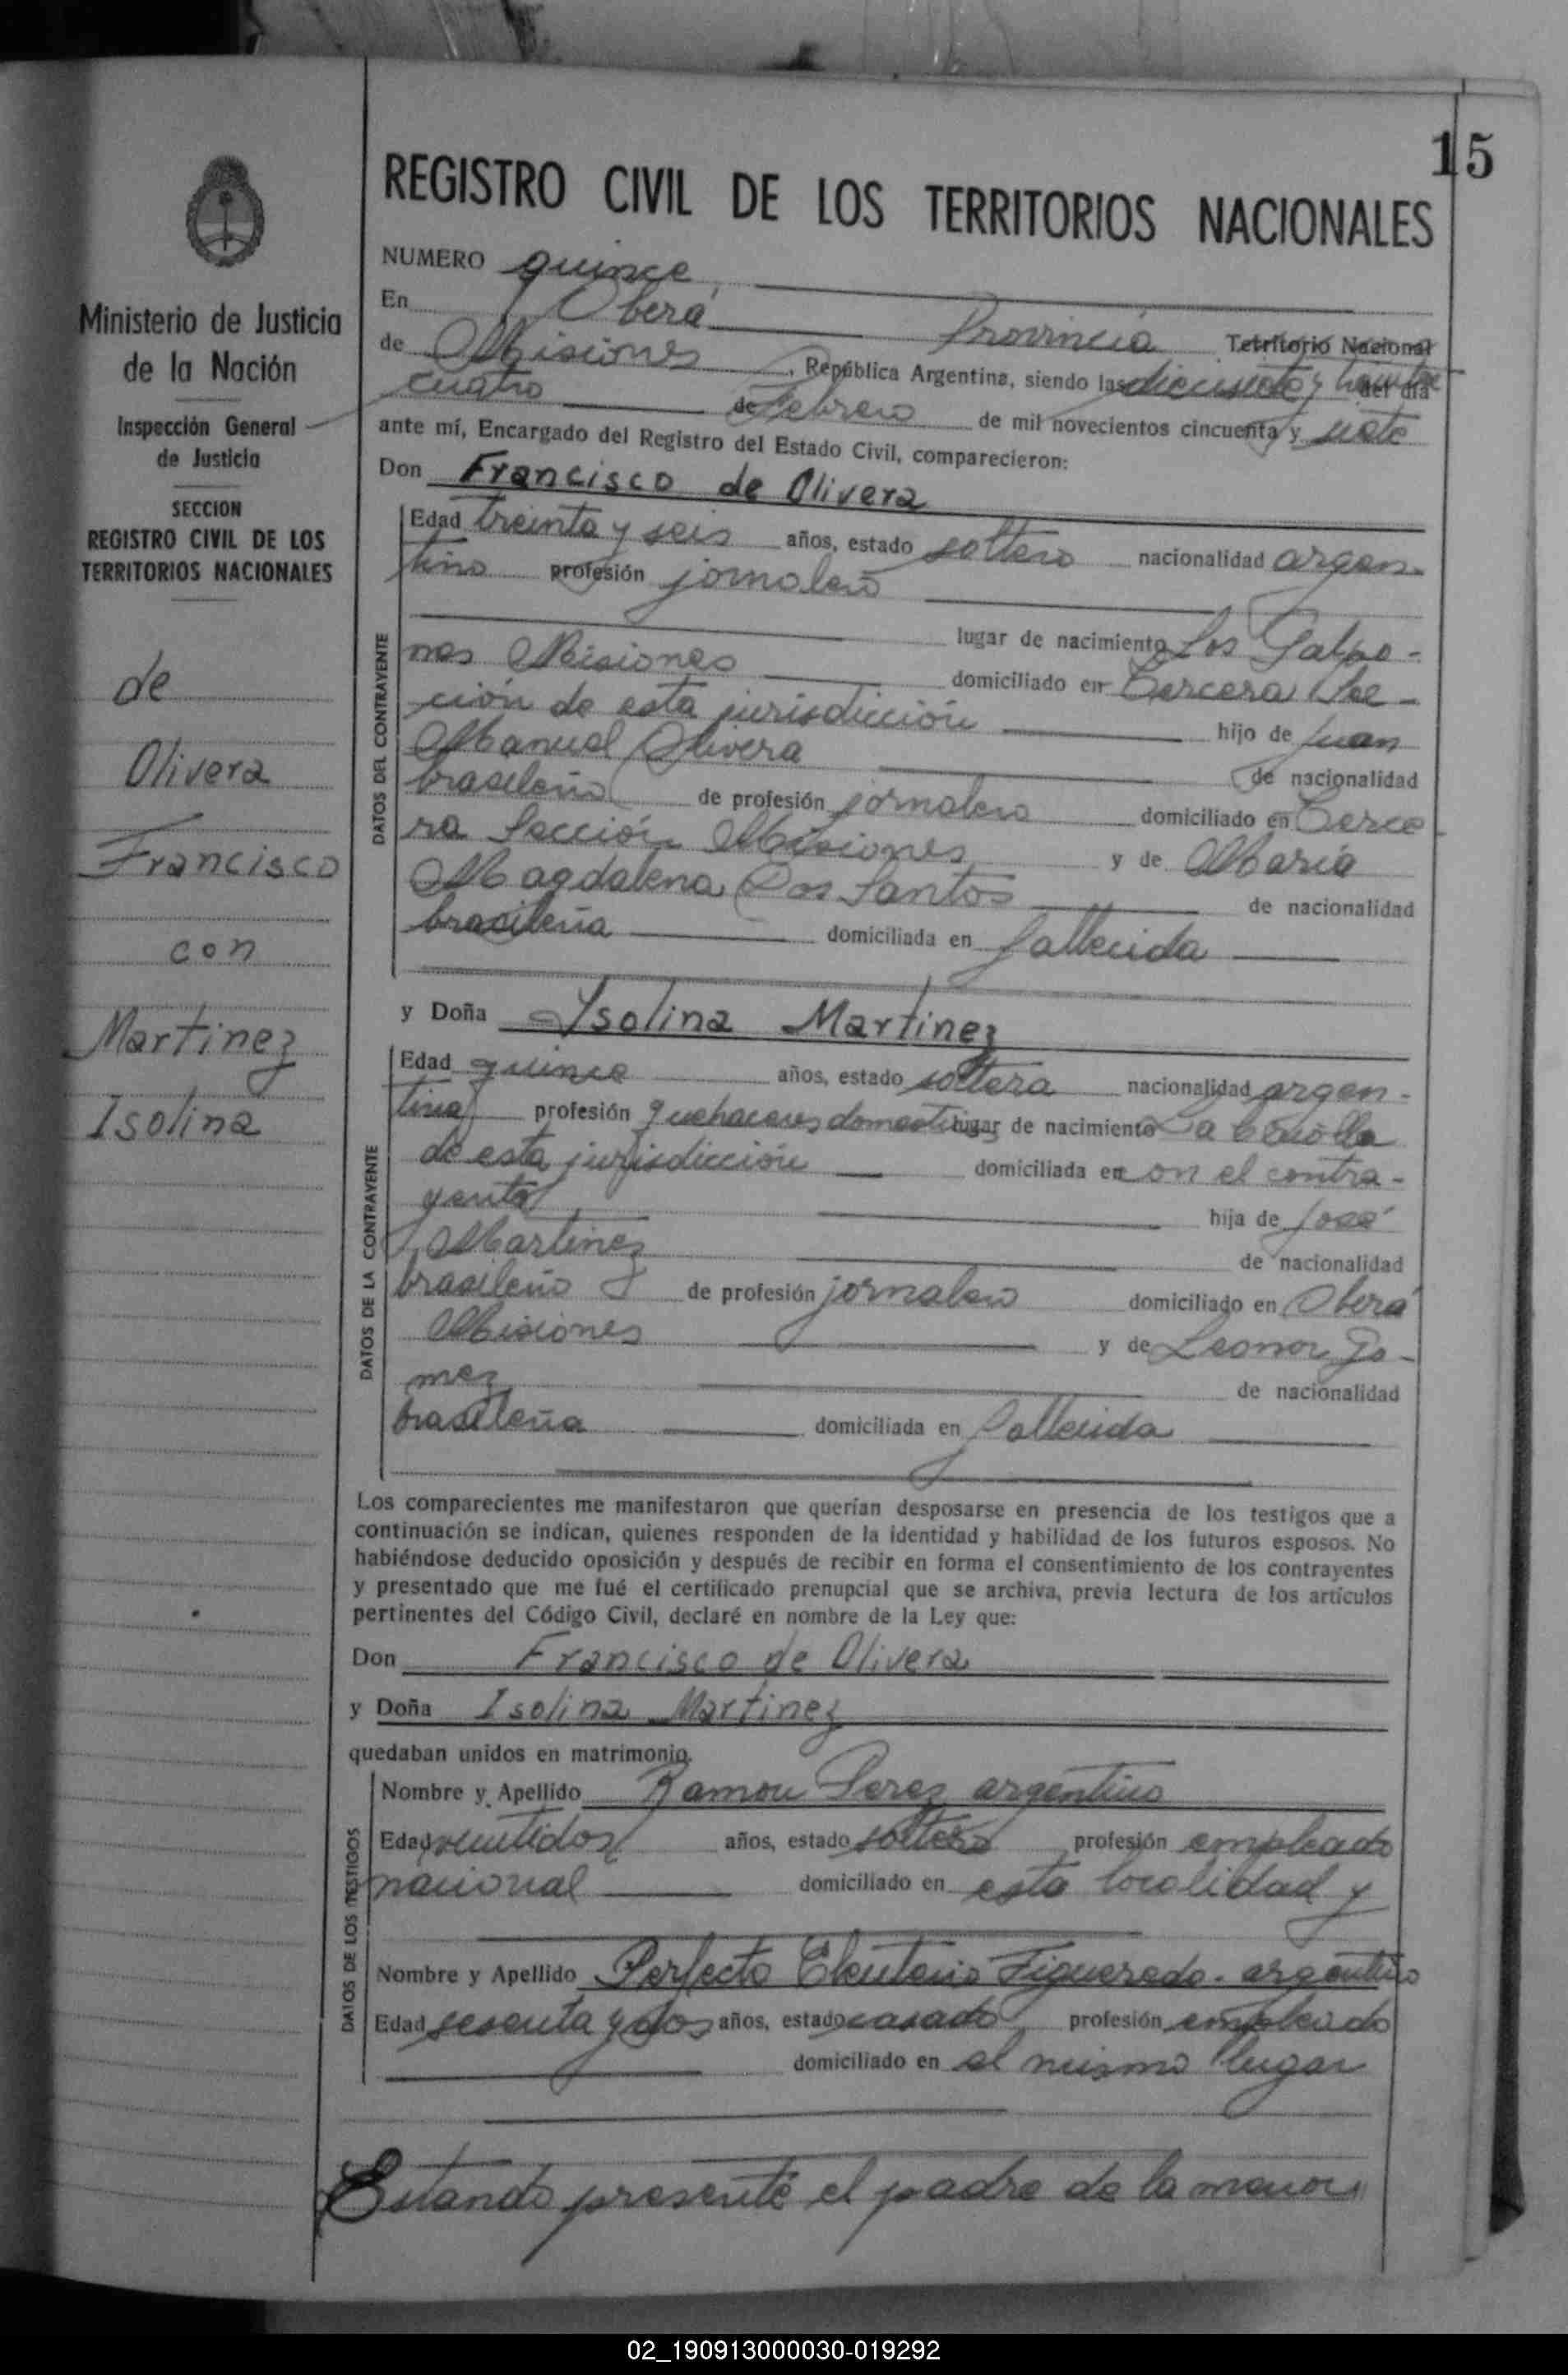 15
REGISTRO CIVIL DE LOS TERRITORIOS NACIONALES
Ministerio de Justicia
de la Nación
Inspección General
de Justicia
SECCION
REGISTRO CIVIL DE LOS
TERRITORIOS NACIONALES
de
Olivera
Francisco
con
Martinez
Isolina
NUMERO quince
En Oberá Provincia Territorio Nacional
de Misiones, República Argentina, siendo las diecisiete y treinta del día
cuatro de Febrero de mil novecientos cincuenta y siete
ante mí, Encargado del Registro del Estado Civil, comparecieron:
Don Francisco de Olivera
DATOS DEL CONTRAYENTE
Edad treinta y seis años, estado soltero nacionalidad argen-
tino profesión jornalero
lugar de nacimiento Los Galpo-
nes Misiones domiciliado en Tercera Sec-
ción de esta jurisdicción hijo de Juan
Manuel Olivera de nacionalidad
brasileño de profesión jornalero domiciliado en Terce
ra Sección Misiones y de Maria
Magdalena Dos Santos de nacionalidad
brasileña domiciliada en fallecida
y Doña Isolina Martinez
DATOS DE LA CONTRAYENTE
Edad quince años, estado soltera nacionalidad argen-
tina profesión quehaceres domesticos lugar de nacimiento La
de esta jurisdicción domiciliada en con el contra-
yente hija de José
Martinez de nacionalidad
brasileño de profesión jornalero domiciliado en Oberá
Misiones y de Leonor Go-
mez de nacionalidad
brasileña domiciliada en fallecida
Los comparecientes me manifestaron que querían desposarse en presencia de los testigos que a
continuación se indican, quienes responden de la identidad y habilidad de los futuros esposos. No
habiéndose deducido oposición y después de recibir en forma el consentimiento de los contrayentes
y presentado que me fué el certificado prenupcial que se archiva, previa lectura de los artículos
pertinentes del Código Civil, declaré en nombre de la Ley que:
Don Francisco de Olivera
y Doña Isolina Martinez
quedaban unidos en matrimonio.
DATOS DE LOS TESTIGOS
Nombre y Apellido Ramon Perez argentino
Edad veintidos años, estado soltero profesión empleado
nacional domiciliado en esta localidad y
Nombre y Apellido Perfecto Eleuterio Figueredo - argentino
Edad sesenta y dos años, estado casado profesión empleado
domiciliado en el mismo lugar
Estando presente el padre de la menor
02_190913000030-019292